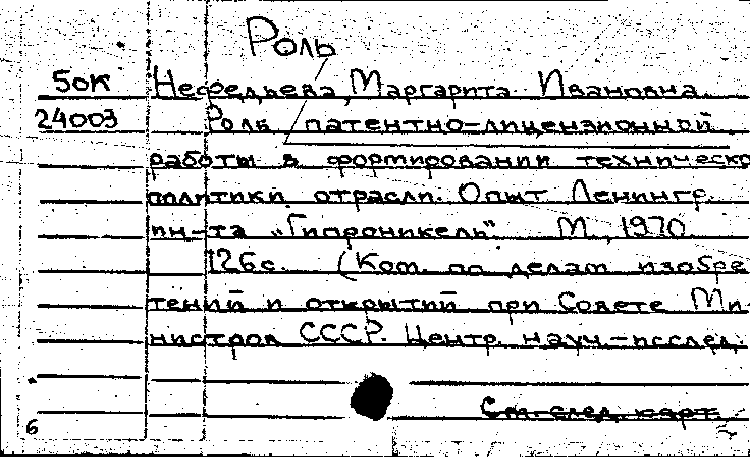 Роль
50К Нефедьева, Маргарита Ивановна.
24003 Роль патентно-лицензионной
работы в формировании техническо
политики отрасли. Опыт Ленингр.
ин-та „Гипроникель". М., 1970.
126с. (Ком. по делам изобре
тений и открытий при Совете Ми
нистров СССР. Центр. науч.-исслед.
См. след. карт.
6